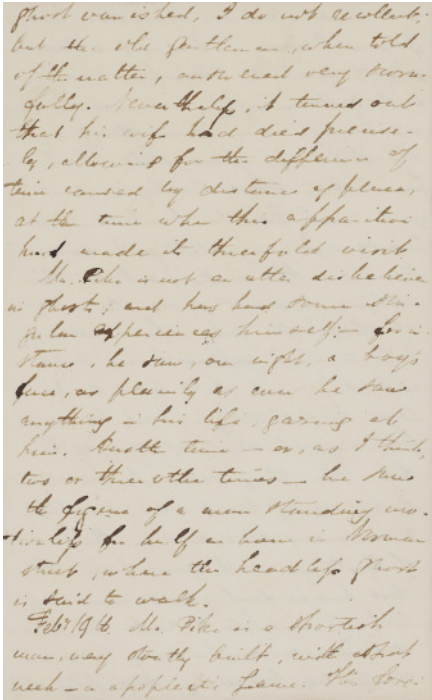 ghost vanished, I do not recollect;
but the old gentleman, when told
of the matter, answered very scorn-
fully. Nevertheless, it turned out
that his wife had died precise-
ly, allowing for the difference of
time caused by distance of place,
at the time when this apparition
had made its threefold visit.
Mr. Pike is not an utter disbeliever
in ghosts, and has had some sin-
gular experiences himself;—for in-
stance, he saw, one night, a boy's
face, as plainly as ever he saw
anything in his life, gazing at
him. Another time—or, as I think,
two or three other times—he saw
the figure of a man standing mo-
tionless for half an hour in Norman
street, where the headless ghost
is said to walk.
Feby 19th. Mr. Pike is a shortish
man, very stoutly built, with a short
neck—an apoplectic frame. His